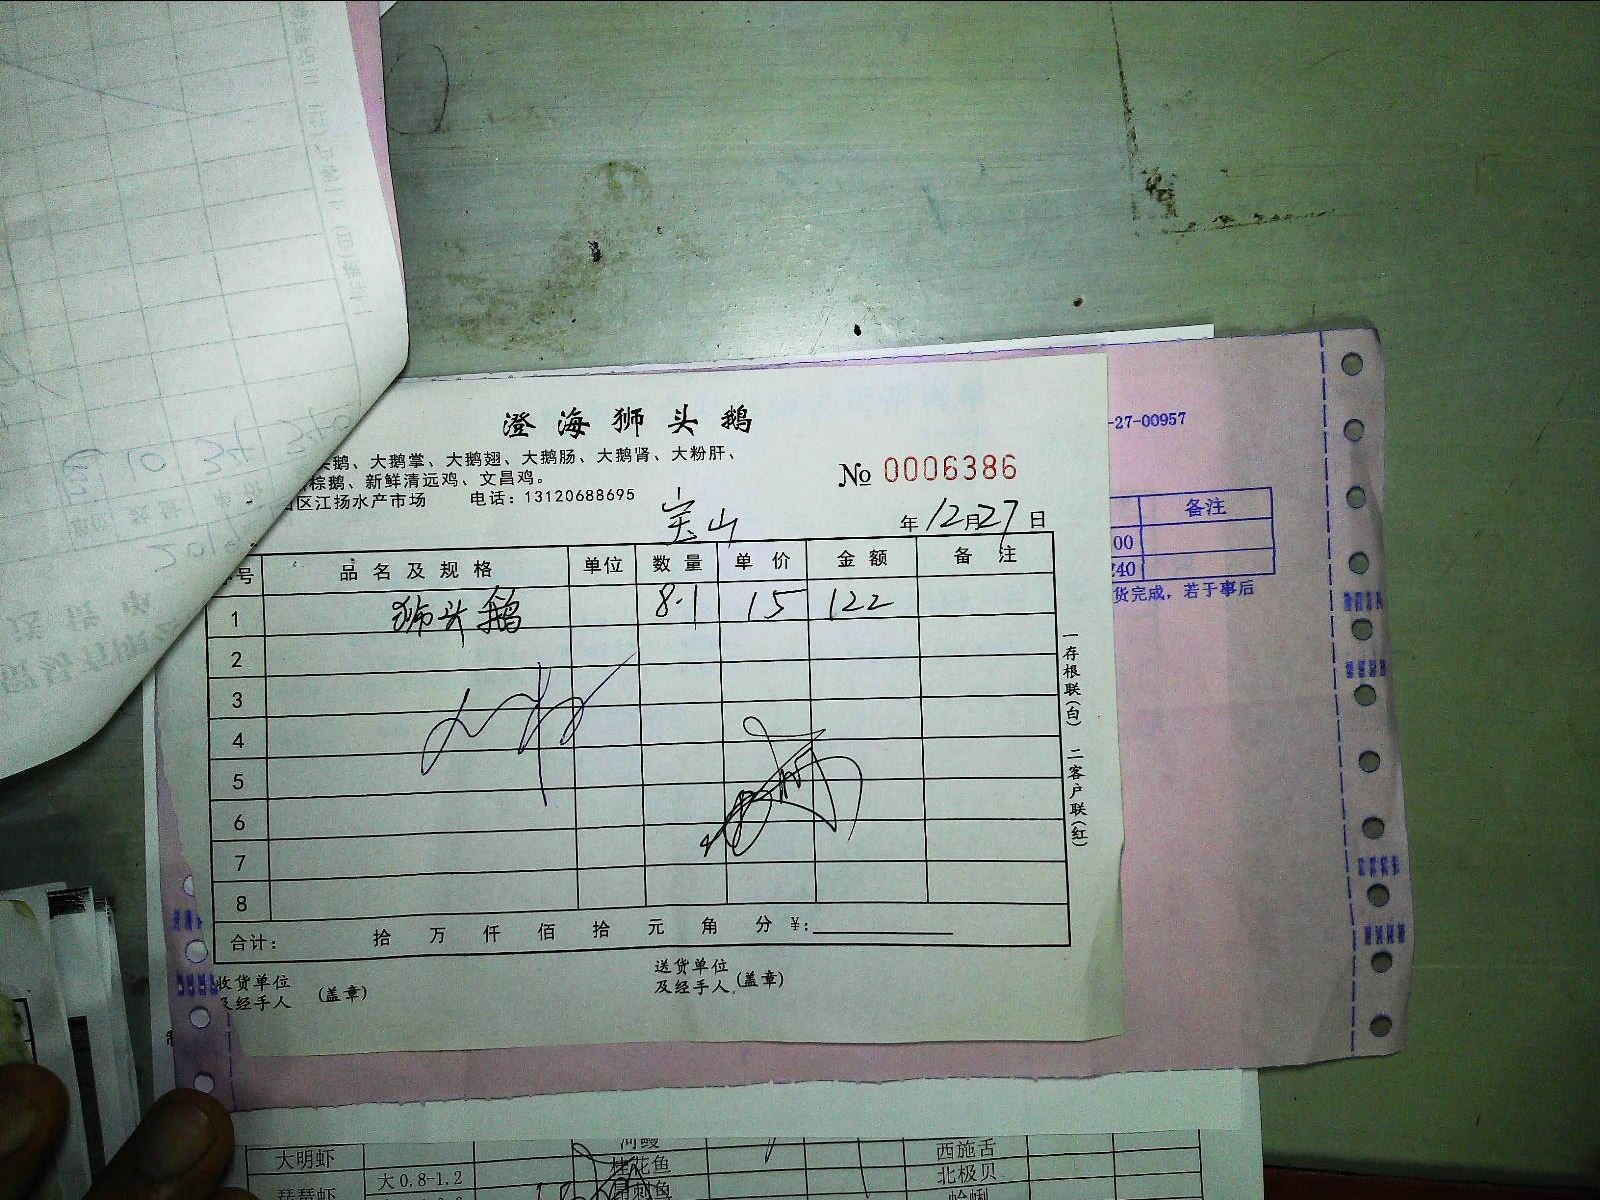 澄海狮头鹅
头鹅、大鹅掌、大鹅翅、大鹅肠、大鹅肾、大粉肝、
棕鹅、新鲜清远鸡、文昌鸡。
区江扬水产市场 电话：13120688695
No 0006386
宝山
年12月27日
号 品名及规格 单位 数量 单价 金额 备注
1 狮头鹅 8.1 15 122
2
3
4
5
6
7
8
合计： 拾 万 仟 佰 拾 元 角 分 ¥:
收货单位
及经手人 (盖章)
送货单位
及经手人 (盖章)
一存根联(白) 二客户联(红)
-27-00957
备注
00
240
货完成，若于事后
大明虾
大0.8-1.2
河鳗
桂花鱼
西施舌
北极贝